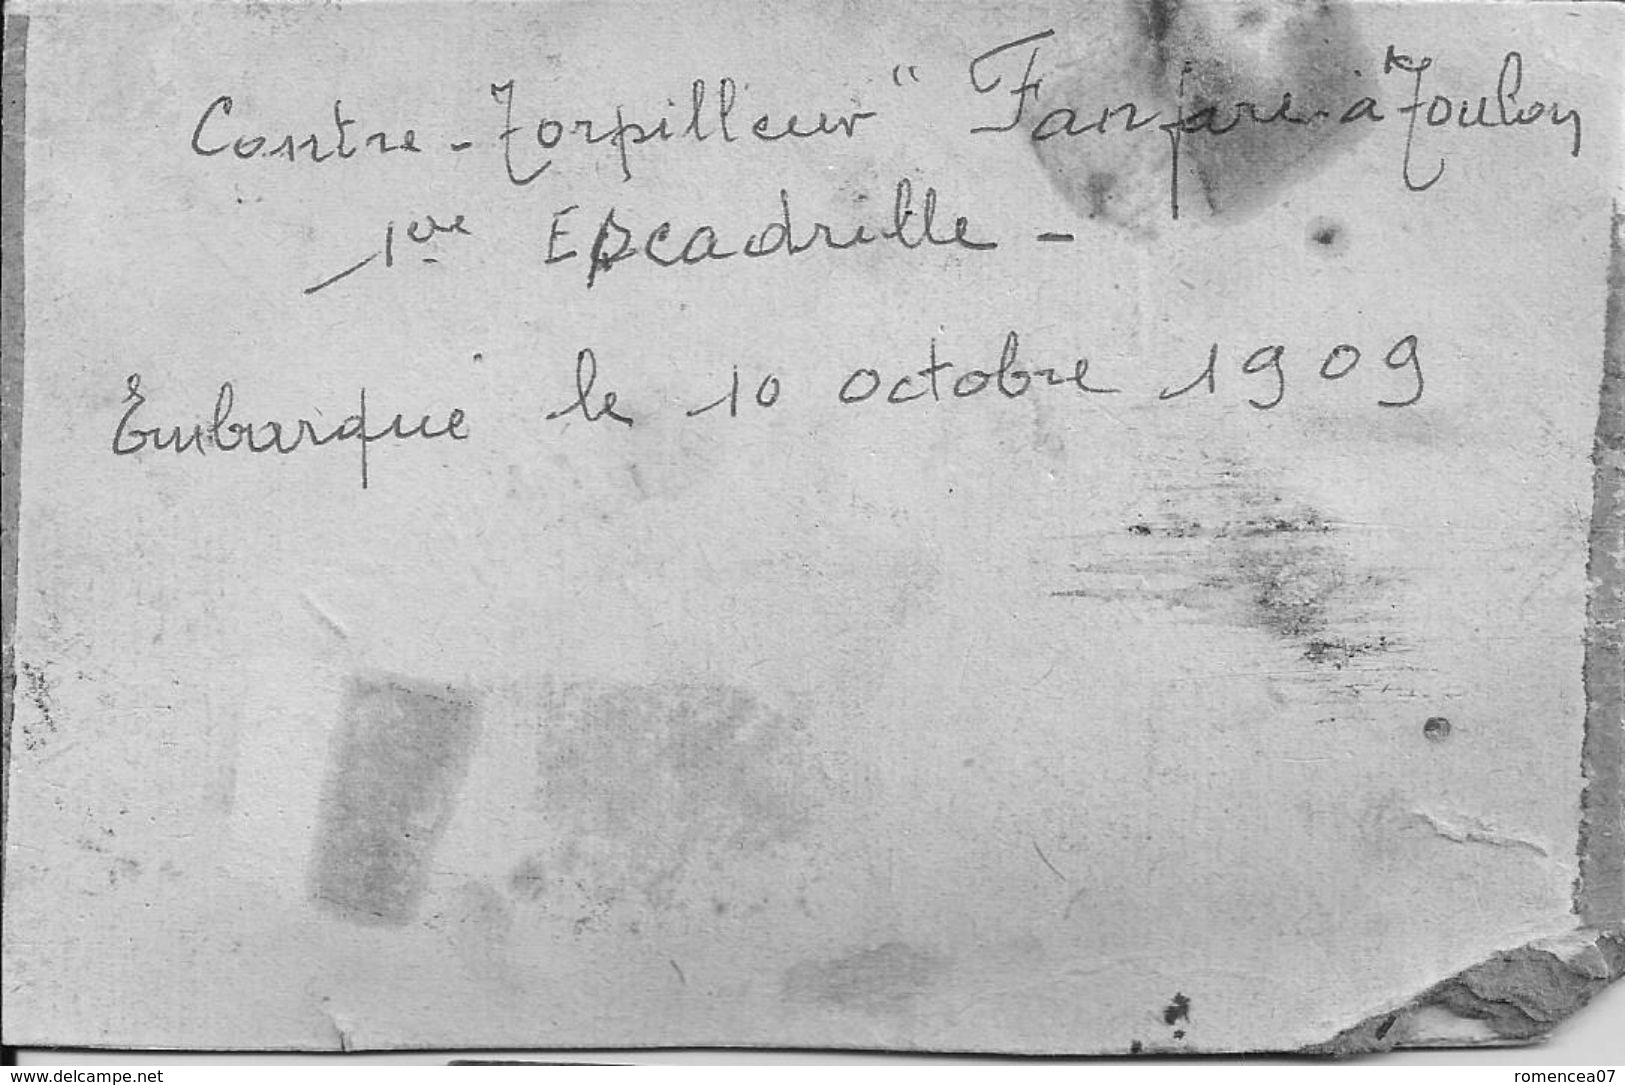 Contre-Torpilleur " Fanfare à Toulon
1ère Escadrille -
Embarqué le 10 octobre 1909
www.delcampe.net
romencea07